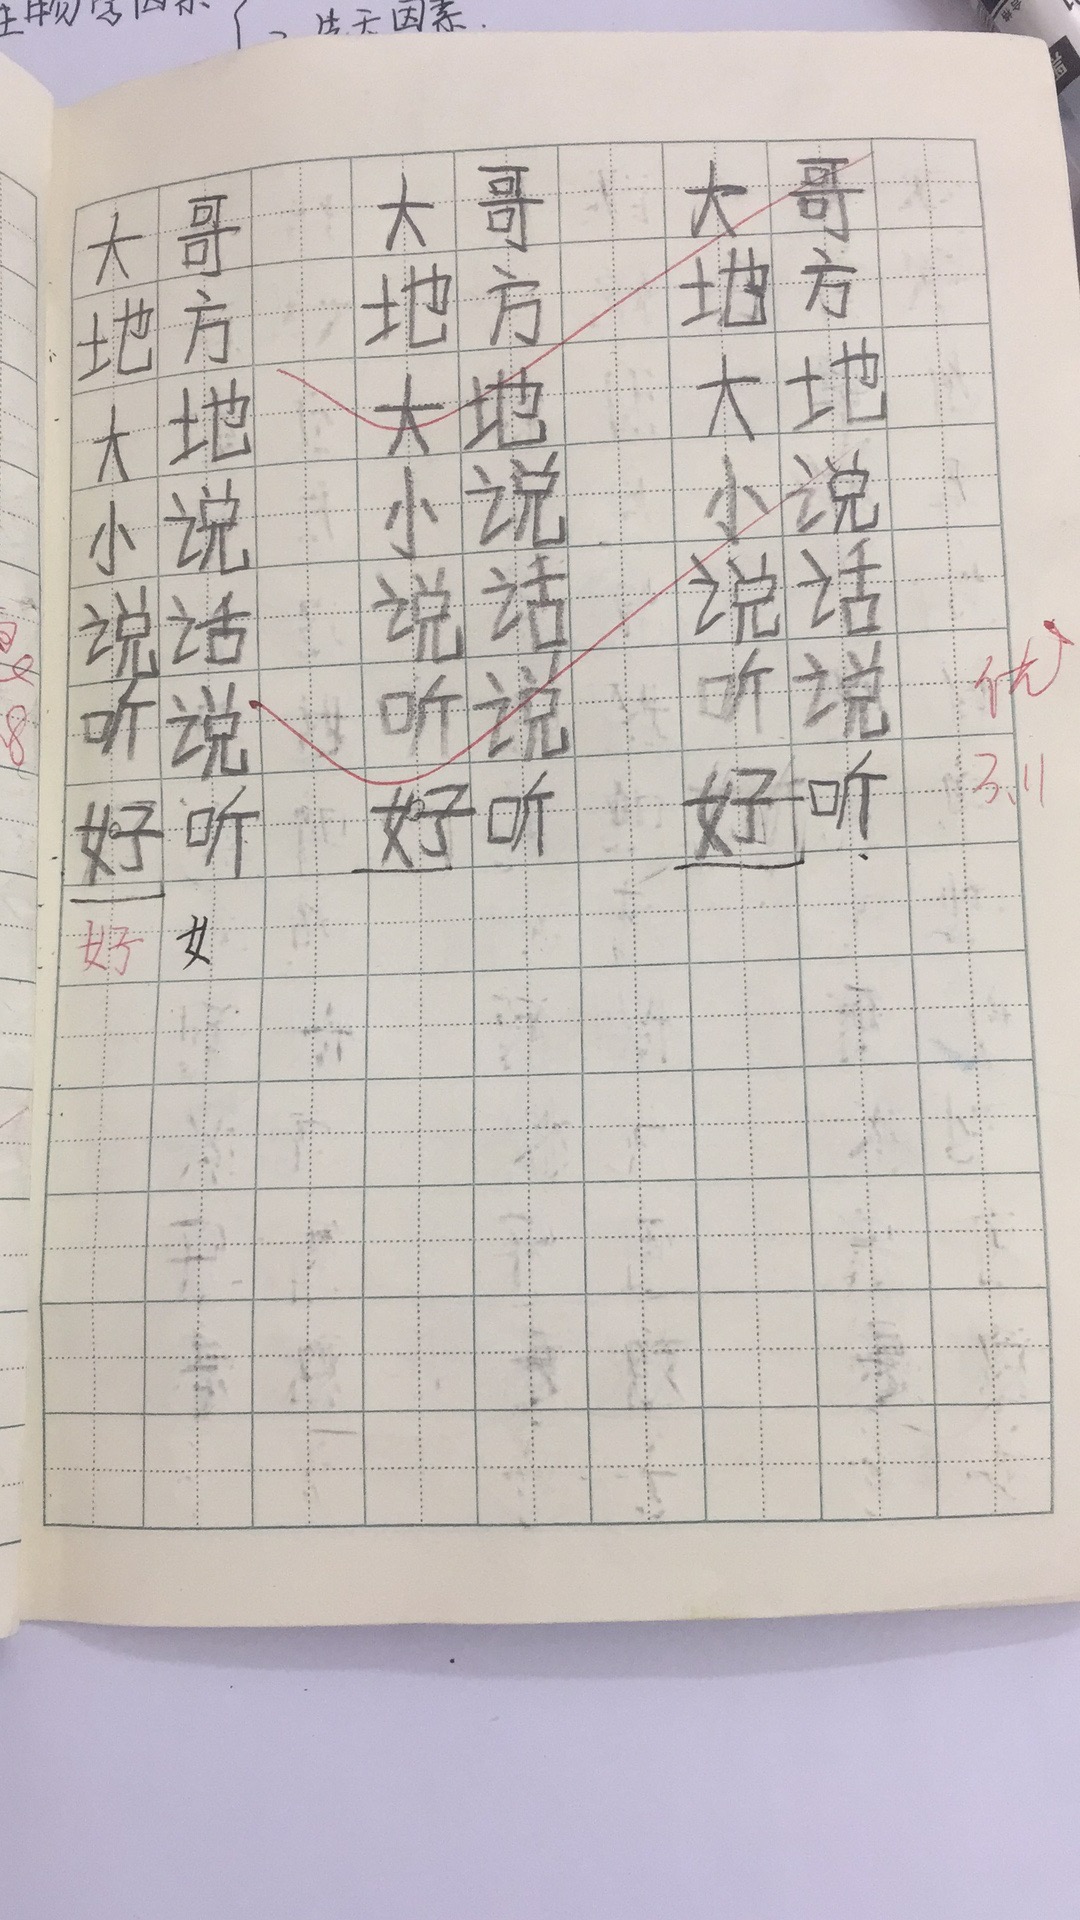 生物学因素
先天因素.
大哥 大哥 大哥
地方 地方 地方
大地 大地 大地
小说 小说 小说
说话 说话 说话
听说 听说 听说
好听 好听 好听
好 女
优
3.11